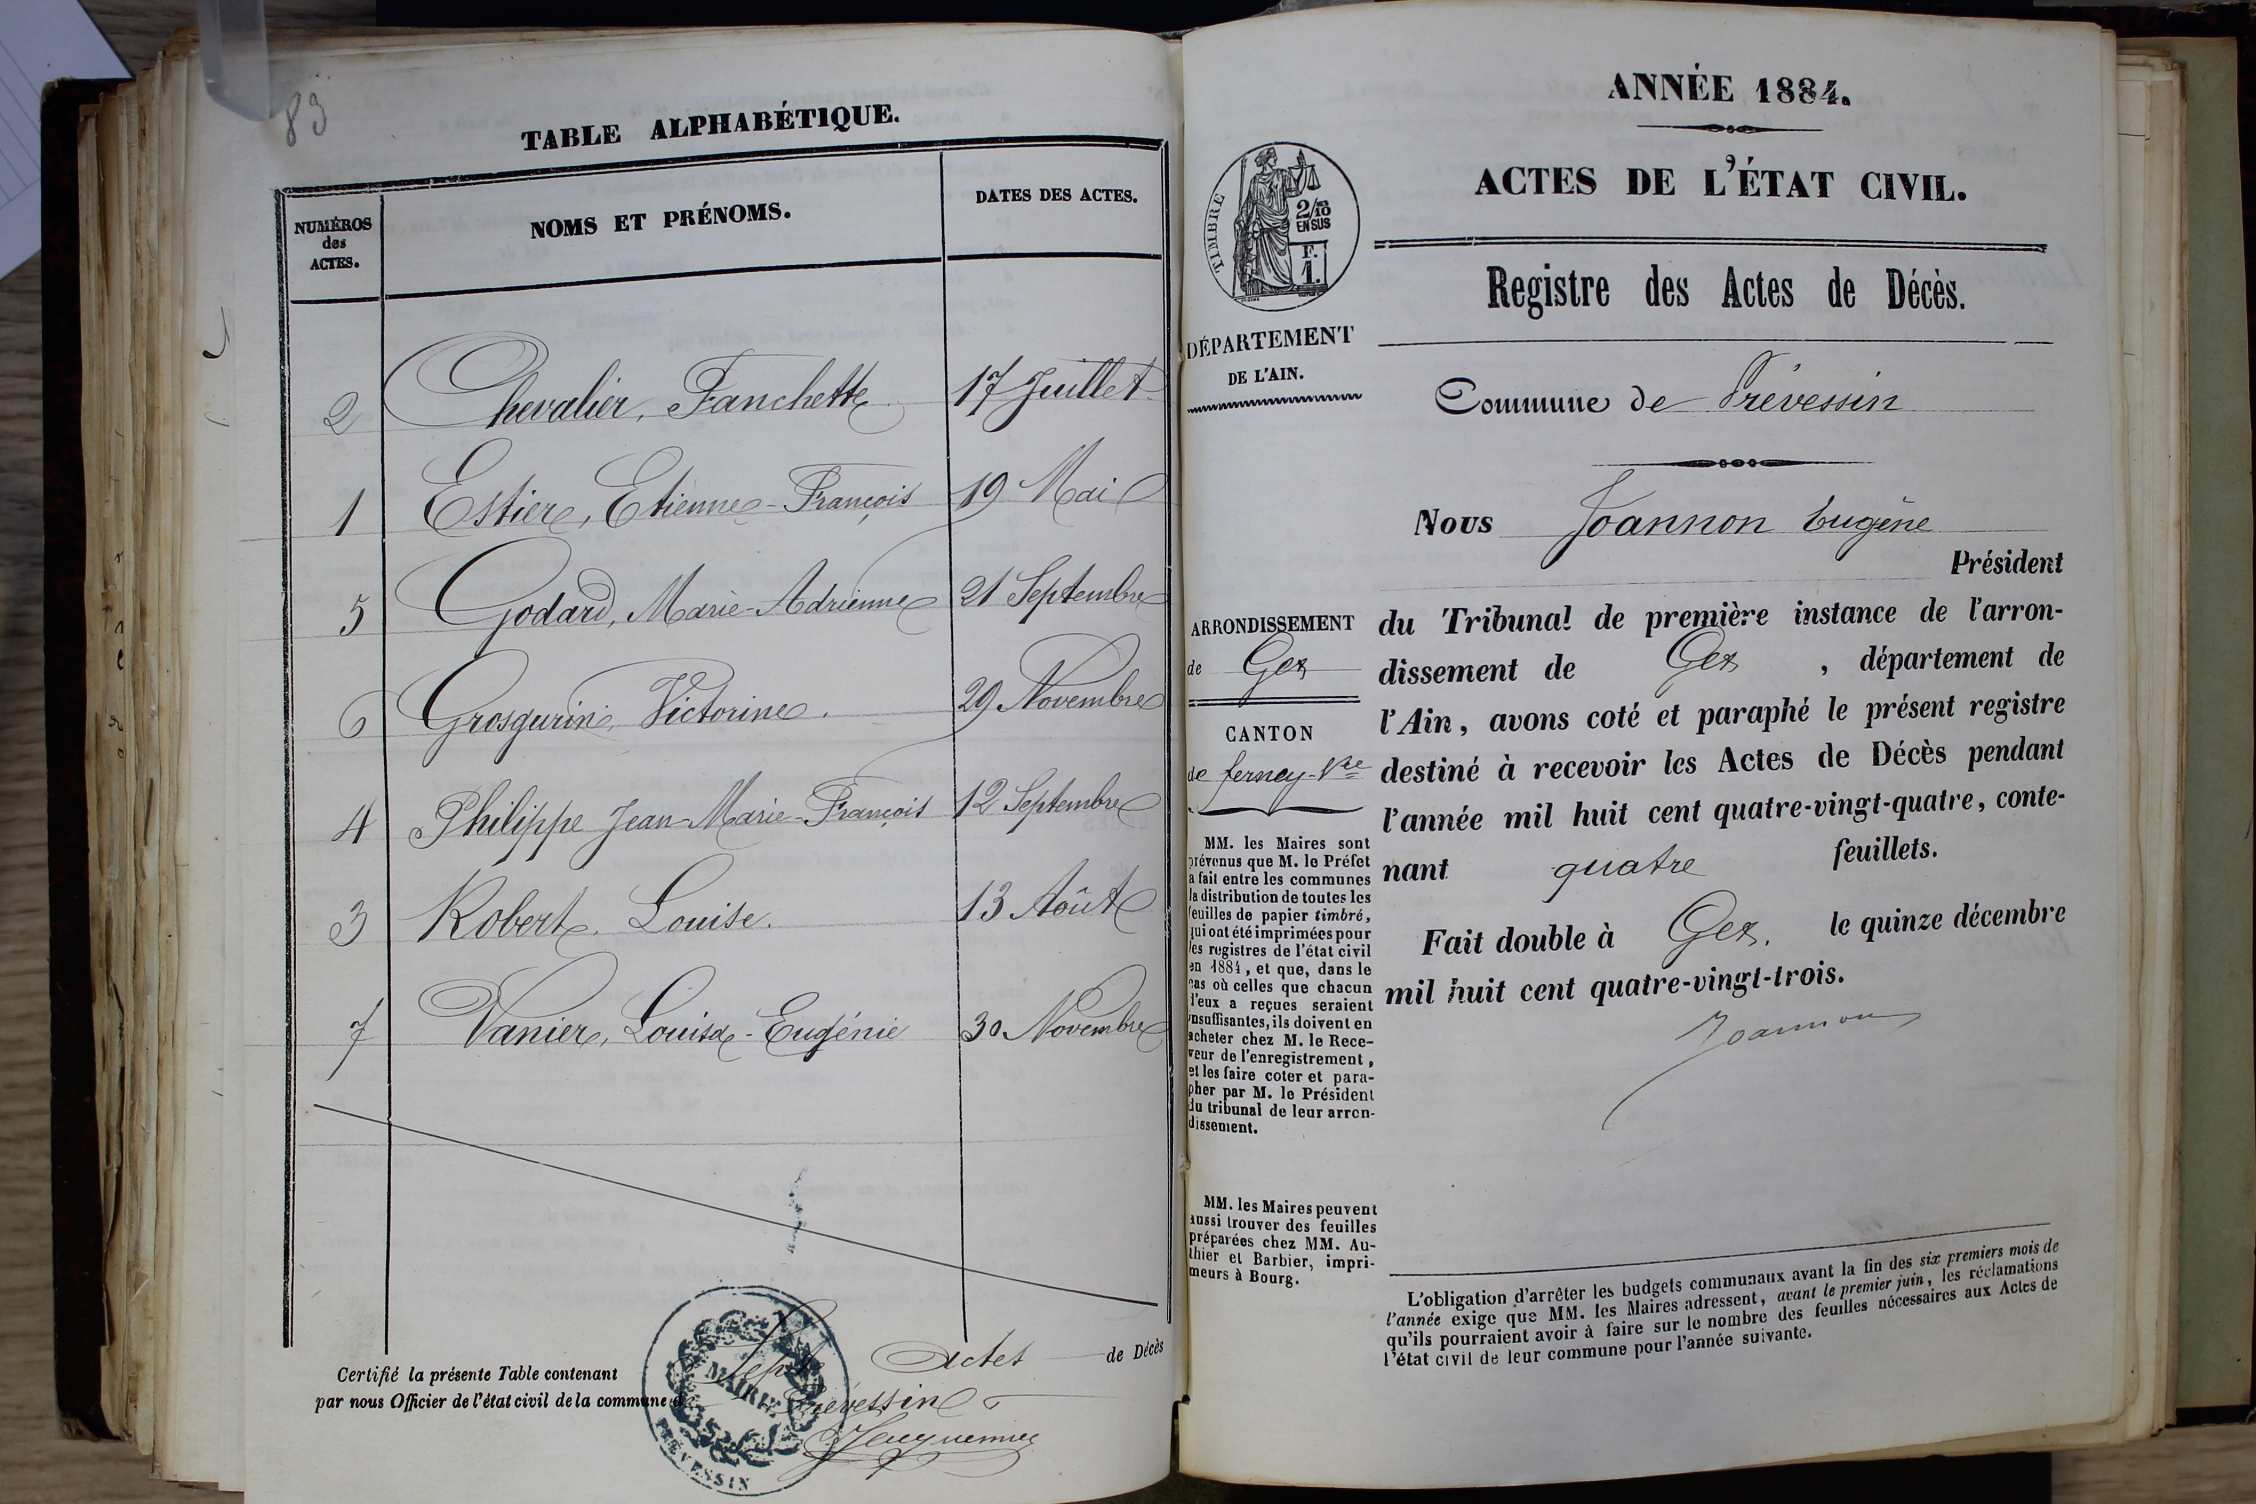 83
TABLE ALPHABÉTIQUE.
NUMÉROS
des
ACTES.
NOMS ET PRÉNOMS.
DATES DES ACTES.
2 Chevalier, Fanchette 17 Juillet
1 Estier, Etienne-François 19 Mai
5 Godard, Marie-Adrienne 21 Septembre
6 Grosgurin, Victorine. 29 Novembre
4 Philippe Jean-Marie-François 12 Septembre
3 Robert, Louise. 13 Août
7 Vanier, Louisa-Eugénie 30 Novembre
Certifié la présente Table contenant Sept Actes de Décès
par nous Officier de l'état civil de la commune de Prévessin
MAIRIE
PRÉVESSIN
ANNÉE 1884.
ACTES DE L'ÉTAT CIVIL.
TIMBRE
2/10
EN SUS
F.
1.
Registre des Actes de Décès.
DÉPARTEMENT
DE L'AIN.
Commune de Prévessin
Nous Joannon Eugène
Président
du Tribunal de première instance de l'arron-
dissement de Gex, département de
l'Ain, avons coté et paraphé le présent registre
destiné à recevoir les Actes de Décès pendant
l'année mil huit cent quatre-vingt-quatre, conte-
nant quatre feuillets.
Fait double à Gex. le quinze décembre
mil huit cent quatre-vingt-trois.
Joannon
ARRONDISSEMENT
de Gex
CANTON
de ferney-Vre
MM. les Maires sont
prévenus que M. le Préfet
a fait entre les communes
la distribution de toutes les
feuilles de papier timbré,
qui ont été imprimées pour
les registres de l'état civil
en 1884, et que, dans le
cas où celles que chacun
d'eux a reçues seraient
insuffisantes, ils doivent en
acheter chez M. le Rece-
veur de l'enregistrement,
et les faire coter et para-
pher par M. le Président
du tribunal de leur arron-
dissement.
MM. les Maires peuvent
aussi trouver des feuilles
préparées chez MM. Au-
thier et Barbier, impri-
meurs à Bourg.
L'obligation d'arrêter les budgets communaux avant la fin des six premiers mois de
l'année exige que MM. les Maires adressent, avant le premier juin, les réclamations
qu'ils pourraient avoir à faire sur le nombre des feuilles nécessaires aux Actes de
l'état civil de leur commune pour l'année suivante.